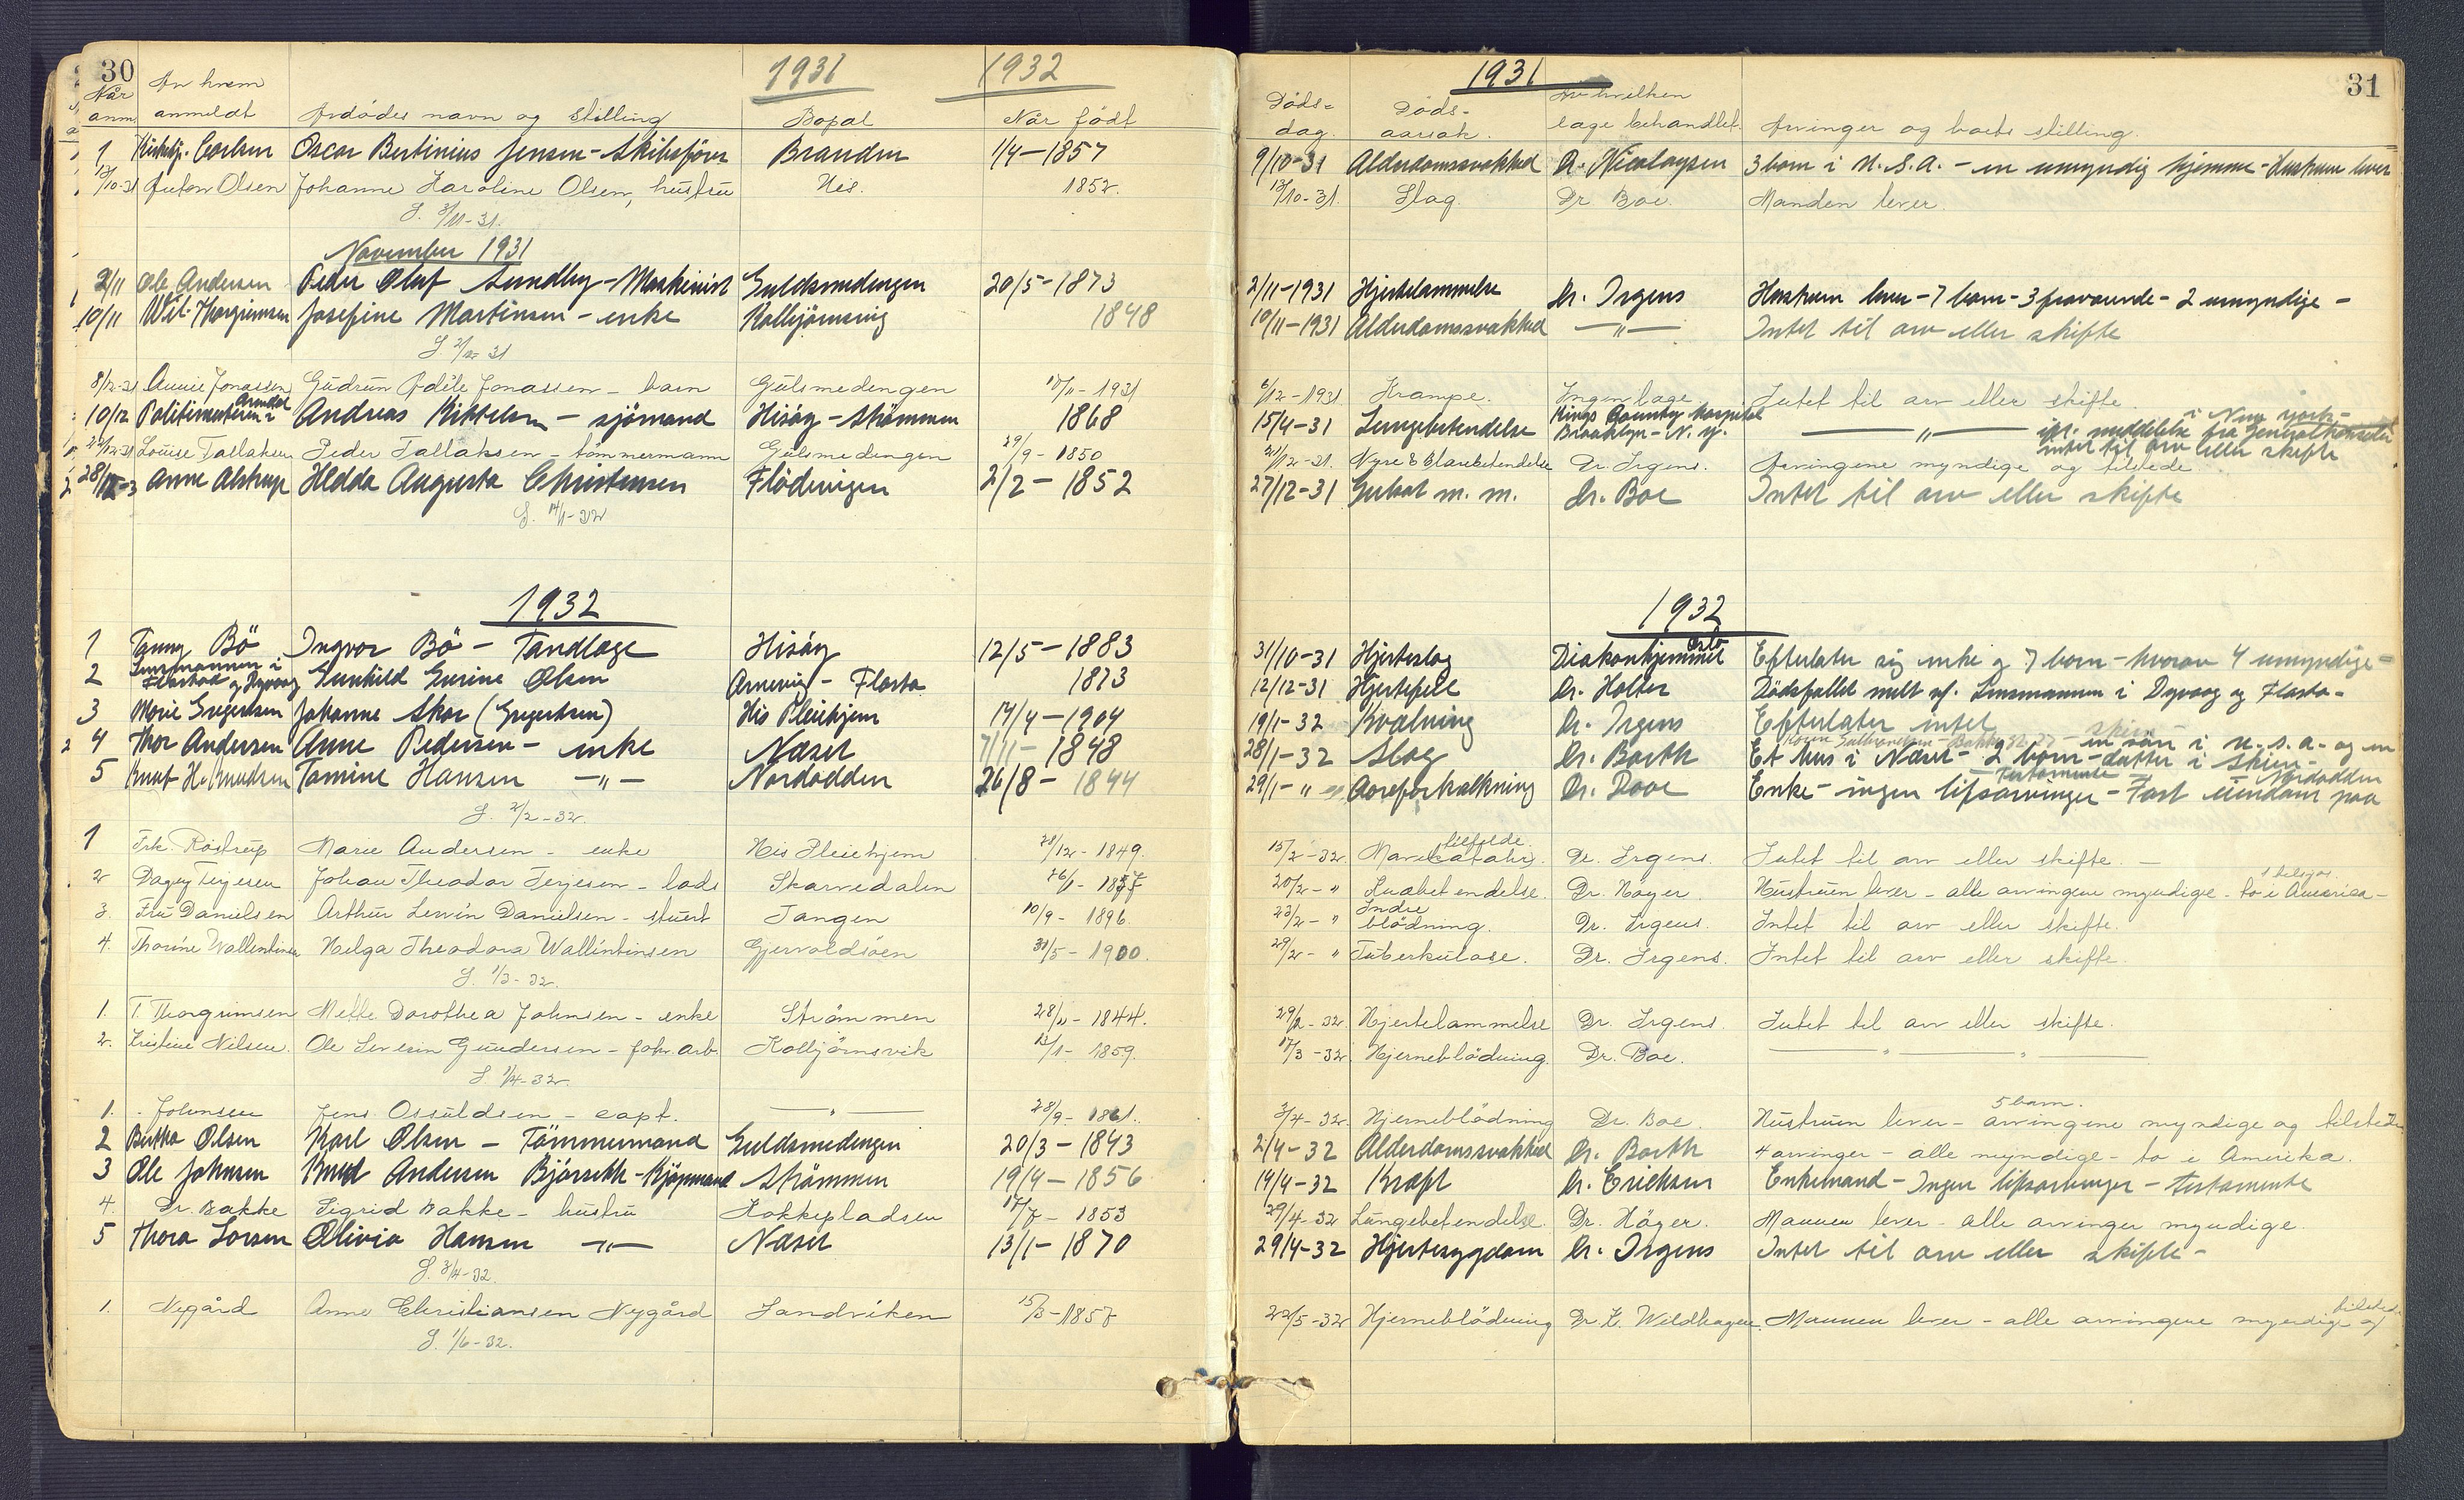 30 1931 1932
Når anm. Av hvem anmeldt Avdødes navn og stilling Bopæl Når født
1 Kirketj. Carlsen Oscar Bertinius Jensen - Skibsfører Branden 1/4 - 1857
13/10-31 Anton Olsen Johanne Karoline Olsen, hustru His. 1852.
S. 3/11-31.
November 1931
2/11 Ole Andersen Peder Oluf Sundby - Maskinist Guldsmedengen 20/5 - 1873
10/11 Wil. Thorgrimsen Josefine Martinsen - enke Kolbjörnsvig 1848
S 2/12 31
8/12-31 Annie Jonassen Gudrun Adéle Jonassen - barn Gulsmedengen 10/11 - 1931
10/12 Politimesteren i Arendal Andreas Kittelsen - sjömand Hisöy - Strömmen 1868
22/12-31 Louise Tallaksen Peder Tallaksen - tömmermann Gulsmedengen 29/9 - 1850
28/12-3 Anne Alstrup Hedda Augusta Christensen Flödevigen 2/2 - 1852
S. 14/1-32
1932
1 Fanny Bö Ingvor Bö - Tandlæge Hisöy 12/5 - 1883
2 Lensmannen i Flostad og Dypvaag Gunhild Gurine Olsen Arnevig - Flosta 1873
3 Marie Gregertsen Johanne Skor (Gregertsen) His Pleiehjem 14/4 - 1904
4 Thor Andersen Anne Pedersen - enke Næset 7/11 - 1848
5 Knut H. Knudsen Tomine Hansen - " - Nordodden 26/8 - 1844
S. 2/2 - 32.
1 Frk. Röstrup Marie Andersen - enke His Pleiehjem 28/12 - 1849.
2 Dagny Terjesen Johan Theodor Terjesen - lods Skarvedalen 26/1 - 1857
3. Fru Danielsen Arthur Lervin Danielsen - stuert Tangen 10/9 - 1896
4. Thorine Wallentinsen Helga Theodora Wallintinsen Gjervoldsöen 31/5 - 1900.
S. 1/3 - 32.
1. T. Thorgrimsen Mette Dorothea Johnsen - enke Strömmen 28/11 - 1844.
2. Kristine Nilsen. Ole Severin Gundersen - forh. arb. Kolbjörnsvik 12/1 - 1859.
S 1/4 - 32.
1. Johnsen Jens Osuldsen - capt. - " - 28/9 - 1861.
2 Bertha Olsen Karl Olsen - Tömmermand Guldsmedengen 20/3 - 1843
3 Ole Johnsen Knud Andersen Bjorsvik - Kjöpmand Strömmen 19/4 - 1856
4. Dr. Bakke Sigrid Bakke - hustru Kokkepladsen 17/7 - 1853
5 Thora Larsen Olivia Hansen - " - Næset 13/1 - 1870
S. 3/4-32.
1. Nygård Anne Christiansen Nygård Sandviken 15/3 - 1857
S. 1/6-32.
1931 31
Döds-dag. Döds-aarsak. Av hvilken læge behandlet. Arvinger og boets stilling.
9/10-31 Alderdomssvakhed Dr. Nicolaysen 3 barn i U.S.A. - en umyndig hjemme - Hustruen lever
13/10-31. Slag. Dr Boe. Manden lever.
2/11-1931 Hjertelammelse Dr. Irgens Hustruen lever - 7 barn - 3 fraværende - 2 umyndige -
10/11-1931 Alderdomssvakhed - " - Intet til arv eller skifte
6/12-1931 Krampe. Ingen læge Intet til arv eller skifte.
15/4-31 Lungebetendelse Kings County Hospital Brooklyn - N.Y. - " - ifr. meddelelse fra Generalkonsulen i New York - intet til arv eller skifte
21/12-31. Nyre & Blærebetendelse Dr. Irgens. Arvingene myndige og tilstede.
27/12-31 Gulsot m. m. Dr. Boe Intet til arv eller skifte
1932
31/10-31 Hjerteslag Diakonhjemmet Oslo Efterlater sig enke og 7 barn - hvorav 4 umyndige -
12/12-31 Hjertefeil Dr. Holter Dödsfallet meldt af Lensmannen i Dypvaag og Flosta -
19/1-32 Kvælning Dr. Irgens Efterlater intet
28/1-32 Slag Dr. Barth Et hus i Næset - 2 barn - datter i Skien - en sön i U.S.A. - og en
29/1- " Aareforkalkning Dr. Dooe Enke - ingen livsarvinger - Testamente - Fast eiendom paa Nordodden
15/2-32. Mavekatahr tilfælde. Dr. Irgens. Intet til arv eller skifte. -
20/2- " Knæbetendelse. Dr. Höyer. Hustruen lever - alle arvingene myndige - to i America -
23/2- " Indre blödning. Dr. Irgens. Intet til arv eller skifte.
29/2- " Tuberkulose. Dr. Irgens. Intet til arv eller skifte.
29/2-32. Hjertelammelse Dr. Irgens. Intet til arv eller skifte.
17/3-32. Hjerneblödning. Dr. Boe. - " - " -
3/4-32. Hjerneblödning Dr. Boe. Hustruen lever - 5 barn. arvingene myndige og tilstede
2/4-32 Alderdomssvakhed Dr. Barth 4 arvinger - alle myndige - to i Amerika.
14/4-32 Kræft Dr. Ericksen Enkemand - Ingen livsarvinger - testamente
29/4-32 Lungebetendelse. Dr. Höyer. Mannen lever - alle arvinger myndige.
29/4-32 Hjertesygdom Dr. Irgens Intet til arv eller skifte -
22/5-32 Hjerneblödning Dr. K. Wildhagen. Mannen lever - alle arvingene myndige og tilstede